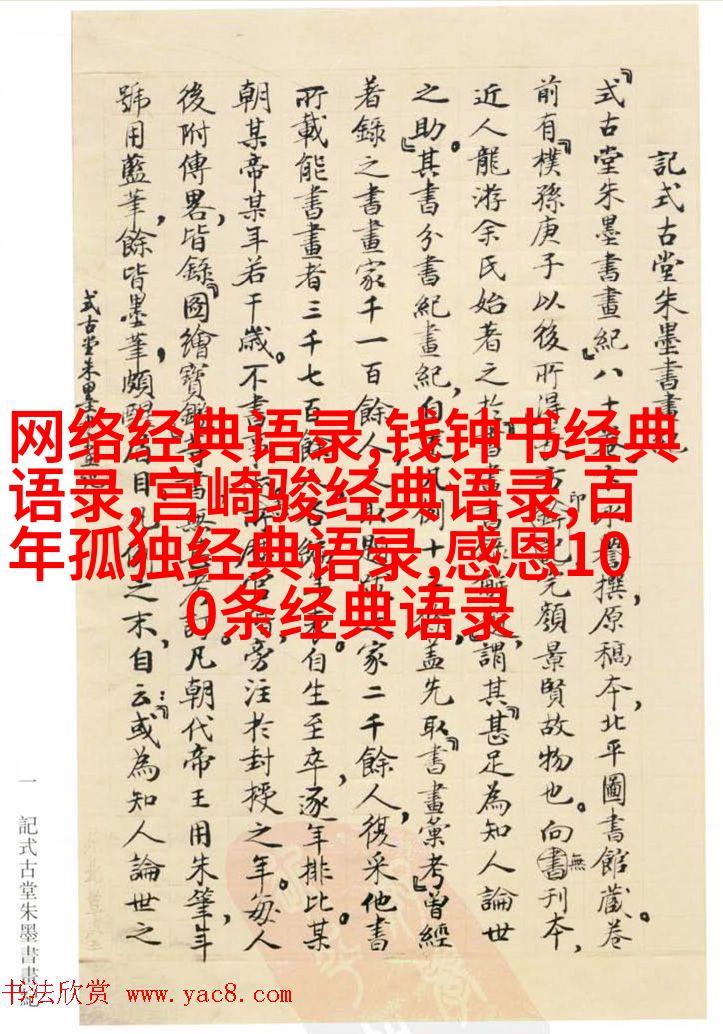 記式古堂朱墨書畫紀
『式古堂朱墨書畫紀』八十
撰，原稿本，北平圖書館藏。卷
前有『樸孫庚子以後所得』
印
完顏景賢故物也。向無書刊本，
近人龍游余氏始著之於
謂其『甚足為知人論世
之助』。其書分書紀畫紀，自
十
蓋先取『書畫彙考』曾經
著錄之書畫家千一百餘人
家二千餘人，復采他書
所載能書畫者三千七百餘
自生至卒，逐年排比某
朝某帝某年若干歲。不書事
旁注於封授之年。每人
後附傳畧，皆錄『圖繪寶鑑
凡朝代帝王用朱筆，年
號用藍筆，餘皆墨筆，頗醒
目
之末，自云：『或為知人論世之
式古堂朱墨書畫紀
一
記式古堂朱墨書畫紀
网络经典语录,钱钟书经典
语录,宫崎骏经典语录,百
年孤独经典语录,感恩10
0条经典语录
书法欣赏 www.yac8.com